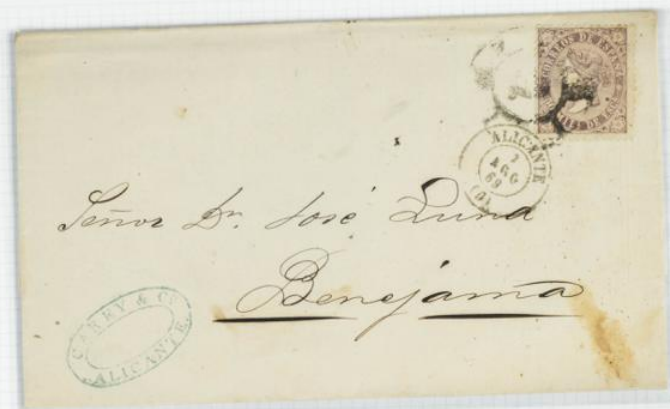 CORREOS DE ESPAÑA
MILS DE ESC
ALICANTE
2
AGO
69
Señor Dn. José Luna
Benejama
CAREY & Co
ALICANTE.